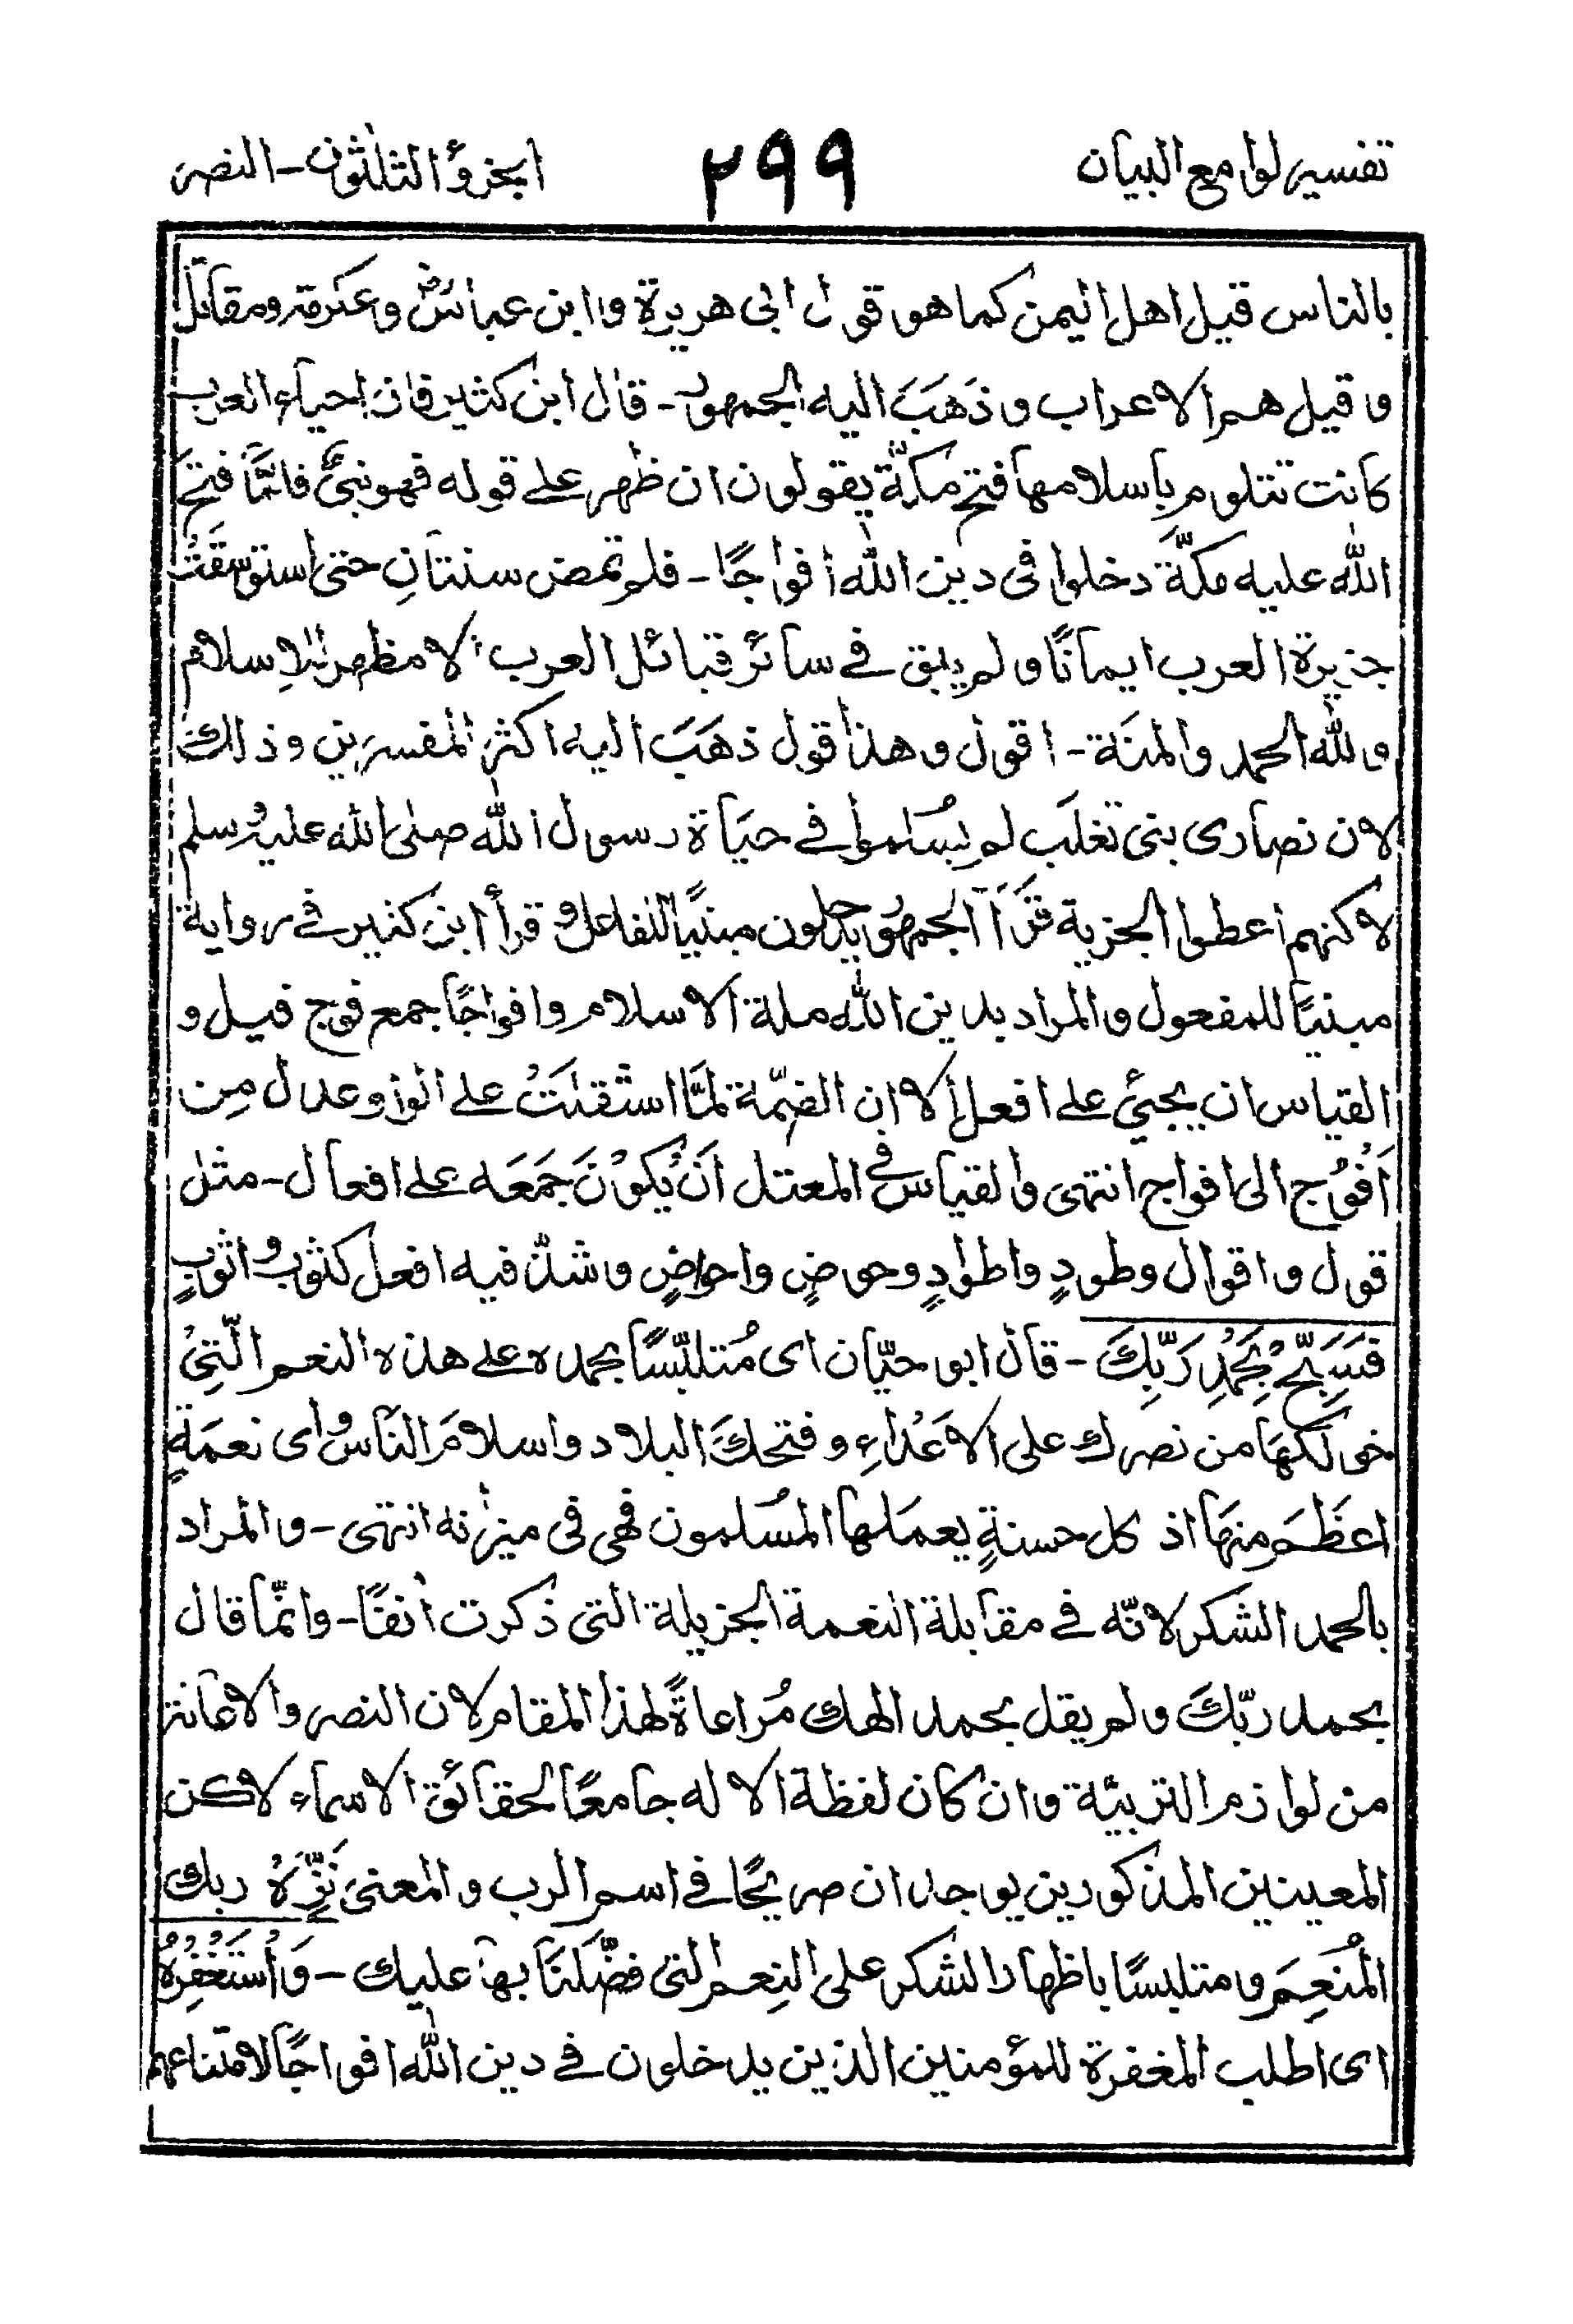 تفسير لوامع البيان ٢٩٩ الجزؤ الثلثون - النصر
بالناس قيل اهل اليمن كما هو قول ابى هريرة وابن عباسؓ وعكرمة ومقاتل
وقيل هم الاعراب وذَهَبَ اليه الجمهور - قال ابن كثير فان احياء العرب
كانت تتلوم باسلامها فتح مكّة يقولون ان ظهر على قومه فهو نبيٌّ فلمّا فتح
الله عليه مكّة دخلوا فى دين الله افواجًا - فلم تمض سنتانِ حتى استوسقت
جزيرة العرب ايمانًا ولم يبق فى سائر قبائل العرب الا مظهر للاِسلام
ولله الحمد والمنَة - اقول وهذا قول ذهَبَ اليه اكثر المفسرين وذلك
لان نصارى بنى تغلَب لم يسْلموا فى حيَاة رسول الله صلى الله عليه وسلم
لاكنهم اعطوا الجزية قرَأ الجمهور يدخلون مبنيًا للفاعل وقرأ ابن كثير فى رواية
مبنيًا للمفعول والمراد بدين الله ملة الاسلام وافواجًا جمع فوج قيل و
القياس ان يجيئ على افعل الا ان الضمّة لمّا استقلت على الواو عدل مِن
اَفْوُج الى افواج انتهى والقياس فى المعتل اَنْ يكوْنَ جَمَعَه على افعال - مثل
قول واقوال وطودٍ واطوادٍ وحوضٍ واحواضٍ وشذّ فيه افعل كثوب واثوبٍ
فَسَبِّحْ بِحَمْدِ رَبِّكَ - قال ابو حيّان اى مُتلبّسًا بحمده على هذه النعم الّتِىْ
خولكهَا من نصرك على الاَعْدَاءِ وفتحكَ البلاد واسلامَ النّاس واى نعمَةٍ
اعظَم منهَا اذ كل حسنةٍ يعمَلها المسْلمون فهى فى ميزانه انتهى - والمراد
بالحمد الشكر لانّه فى مقابلة النعمة الجزيلة التى ذكرت اٰنفًا - وانّما قال
بحمد ربّكَ ولم يقل بحمد الهك مُراعاةً لهذا المقام لان النصر والاعانة
من لوازم التربيّة وان كان لفظة الاله جامعًا لحقائق الاسماء لاكن
المعينين المذكورين يوجدان صريحًا فى اسم الرب والمعنى نَزِّهْ ربك
المُنعِمَ ومتلبسًا باظهار الشكر على النِعم التى فضّلنَا بهَا عليك - وَاسْتَغْفِرْهُ
اى اطلب المغفرة للمؤمنين الذين يدخلون فى دين الله افواجًا لامتناعهم